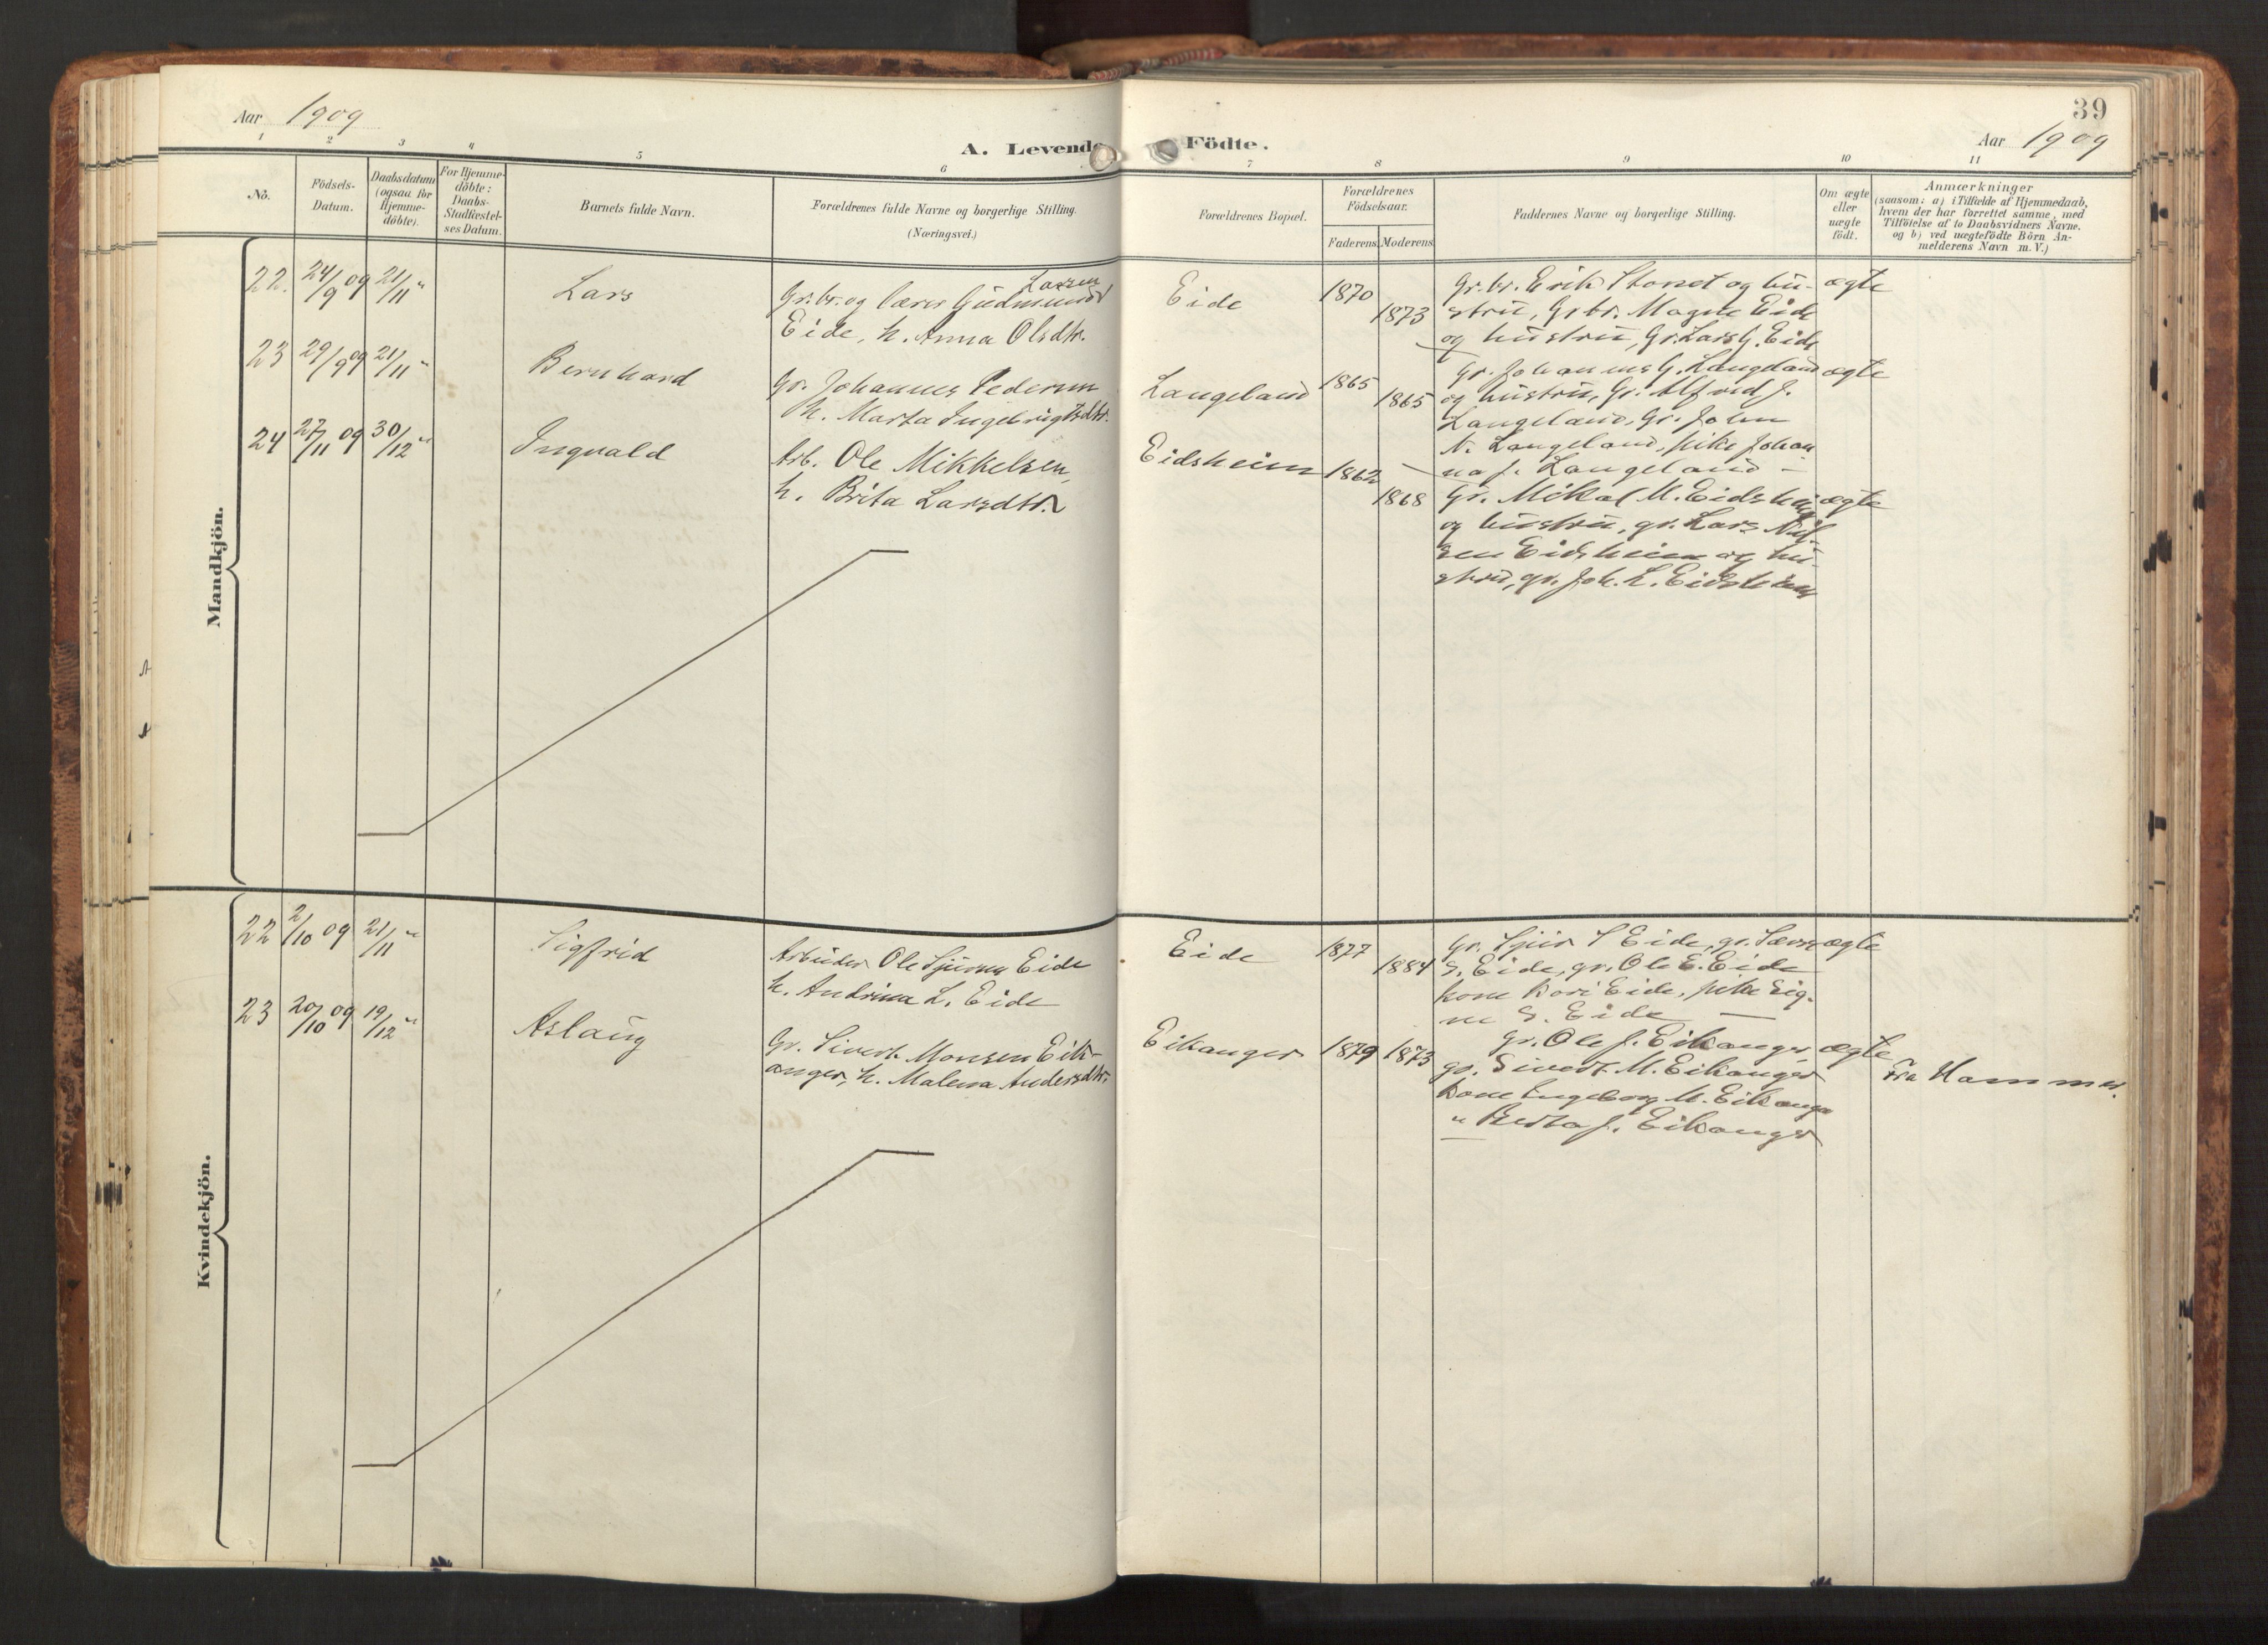 39
Aar 1909
Aar 1909
A. Levende Födte.
1 2 3 4 5 6 7 8 9 10 11
No.
Födsels-
Datum.
Daabsdatum
(ogsaa for
Hjemme-
döbte).
For Hjemme-
döbte:
Daabs-
Stadfæstel-
ses Datum.
Barnets fulde Navn.
Forældrenes fulde Navne og borgerlige Stilling.
(Næringsvei.)
Forældrenes Bopæl.
Forældrenes
Födselsaar.
Faderens. Moderens.
Faddernes Navne og borgerlige Stilling.
Om ægte
eller
uægte
födt.
Anmærkninger
(saasom: a) i Tilfælde af Hjemmedaab,
hvem der har forrettet samme, med
Tilföielse af to Daabsvidners Navne.
og b) ved uægtefödte Börn An-
melderens Navn m. V.)
Mandkjön.
22. 24/9 09 21/11 "
Lars
Larsen
Gr.br. og lærer Gudmund
Eide, h. Anna Olsdtr.
Eide
1870
1873
Gr.br. Erik Stonet og hu-
stru, Grbr. Magne Eide
og hustru, Gr. Lars G. Eide
ægte
23 29/9 09 21/11 "
Bernhard
Gr. Johannes Pedersen
h. Marta Ingebrigtsdtr.
Langeland
1865
1865
Gr. Johannes G. Langeland
og hustru, Gr. Alfred J.
Langeland, Gr. John
N. Langeland, pike Johan
na J. Langeland –
ægte
24 27/11 09 30/12 "
Ingvald
Arb. Ole Mikkelsen,
h. Brita Larsdtr.
Eidsheim
1862
1868
Gr. Mikal M. Eidsheim
og hustru, gr. Lars Nil-
sen Eidsheim og hu-
stru, gr. Joh. L. Eidsheim
ægte
Kvindekjön.
22 2/10 09 21/11 "
Sigfrid
Arbeider Ole Sjursen Eide
h. Andrina L. Eide
Eide
1877
1884
Gr. Sjur S Eide, gr.
S. Eide, gr. Ole E. Eide
kone Kari Eide, pike Sig-
ne S. Eide –
ægte
23 20/10 09 19/12 "
Aslaug
Gr. Sivert Monsen Eik-
anger, h. Malena Andersdtr.
Eikanger
1879 1873
Gr. Ole J. Eikanger,
gr. Sivert M. Eikanger
kone Ingeborg M. Eikanger
" Berta J. Eikanger
ægte
Fra Hammer.